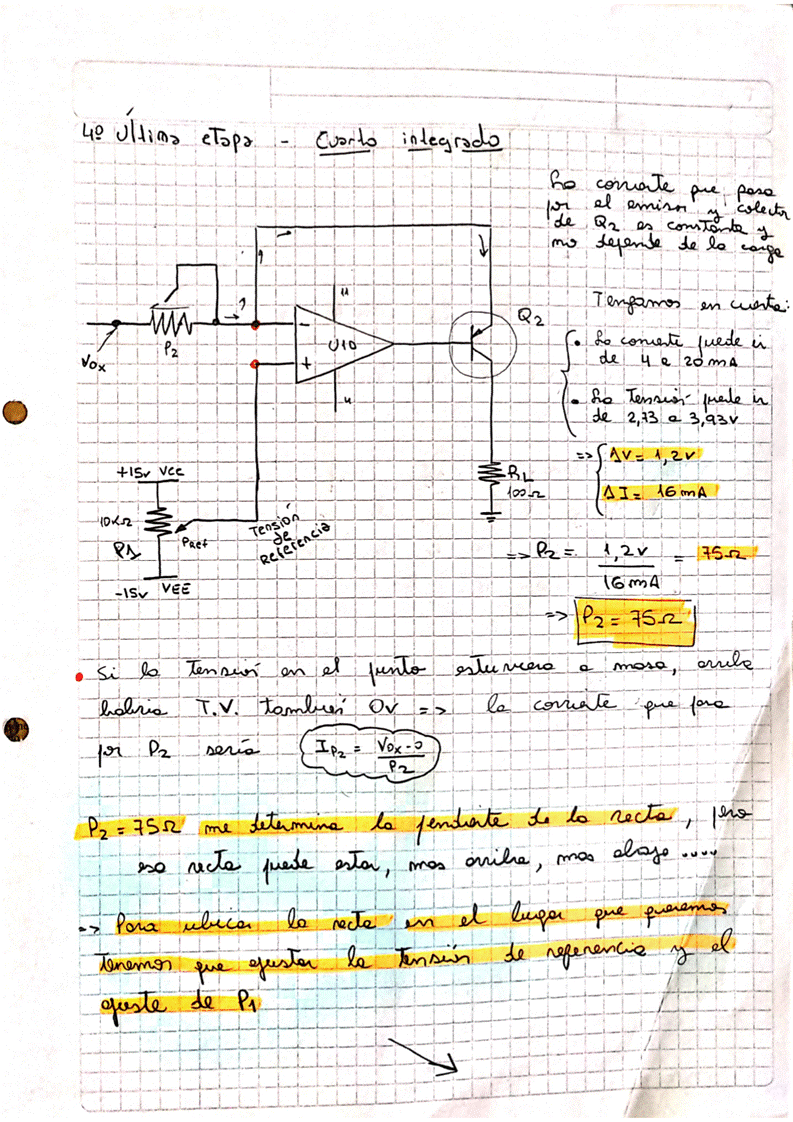 4º Última etapa - Cuarto integrado
La corriente que pasa
por el emisor y colector
de Q2 es constante y
no depende de la carga
Tengamos en cuenta:
• La corriente puede ir
de 4 a 20mA
• La tensión puede ir
de 2,73 a 3,93v
=> ΔV = 1,2v
ΔI = 16mA
=> P2 = 1,2v / 16mA = 75Ω
=> P2 = 75Ω
Vox
P2
-
+
U10
4
4
Q2
RL
100Ω
+15v Vcc
10KΩ
P1
PRef
-15v VEE
Tensión
de
Referencia
• Si la tensión en el punto estuviera a masa, arriba
habría T.V. también 0v => la corriente que pasa
por P2 sería IP2 = Vox-0 / P2
P2 = 75Ω me determina la pendiente de la recta, pero
esa recta puede estar, mas arriba, mas abajo ....
=> Para ubicar la recta en el lugar que queremos
tenemos que ajustar la tensión de referencia y el
ajuste de P1